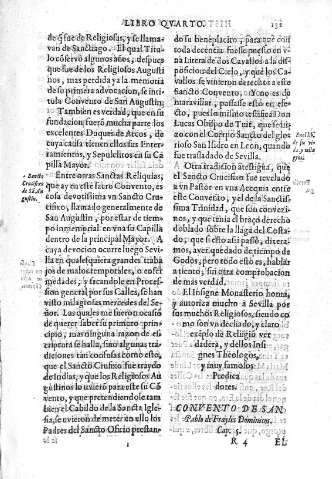 LIBRO QVARTO.
132
de q̃ fue de Religiosas, y se llama-
van de Sanctiago. El qual Titu-
lo cõservò algunos años, despues
que fue de los Religiosos Augusti
nos, mas perdida ya la memoria
de su primera advocacion, se in-
titula Convento de San Augustin.
Tambien es verdad, que en su
fundacion fuerõ mucha parte los
excelentes Duques de Arcos, de
cuya causa tienen ellos sus Enter-
ramientos, y Sepulcros en su Ca
pilla Mayor.
Entre otras Sanctas Reliquias,
que ay en este sacro Convento, es
cosa devotissima vn Sancto Cru-
cifixo, llamado generalmente de
San Augustin, y por estar de tiem-
po inmemorial en vna su Capilla
dentro de la principal Mayor. A
cuya devocion ocurre luego Sevilla
en qualesquiera grandes traba
jos de malos temporales, o enfer
medades, y sacandole en Proces-
sion general por sus Calles, se han
visto milagrosas mercedes del Se-
ñor. Las quales me fueron ocasiõ
de querer saber su primero prin-
cipio, mas ninguna razon de es-
criptura se halla, sino algunas tra-
diciones tan confusas como esto,
que el Sancto Crucifixo fue traydo
de Indias, y que los Religiosos Au
gustinos lo uvieron para este su Cõ
vento, y que pretendiendole tam
bien el Cabildo de la Sancta Igle-
sia, se uvieron de meter en ello los
Padres del Sancto Oficio prestan-
s Sancto
Crucifixo
de Sã Au
gustin.
do su beneplacito, para que con
toda decencia fuesse puesto en v-
na Litera de dos Cavallos à la dis-
posicion del Cielo, y que los Ca-
vallos se vinieron derechos a este
Sancto Convento. Y no es de
maravillar, pues assi està en efe-
cto, pues lo mismo afirma Don
Lucas Obispo de Tui, que acon-
tecio con el Cuerpo Sancto del glo
rioso San Isidro en Leon, quando
fue trasladado de Sevilla.
Otra tradicion atestigua, que
el Sancto Crucifixo fue revelado
a vn Pastor en vna Acequia entre
este Convento, y el de la Sanctis-
sima Trinidad, que son convezi-
nos, y que tenia el braço derecho
doblado sobre la llaga del Costa-
do, que si esto assi passò, dicitera-
mos, aver quedado de tiempo de
Godos, pero todo esto es, hablar
a tiento, sin otra comprobacion
de mas verdad.
El Insigne Monasterio honra,
y autoriza mucho à Sevilla por
sus muchos Religiosos, siendo co
mo son vn declado, y claro
exemplo de Religiõ ver
dadera, y dellos Insi
gnes Theologos,
y muy famosos
Predica
dores.
CONVENTO DE SAN
Pablo de Frayles Dominicos.
Cap. 5.
R 4
EL